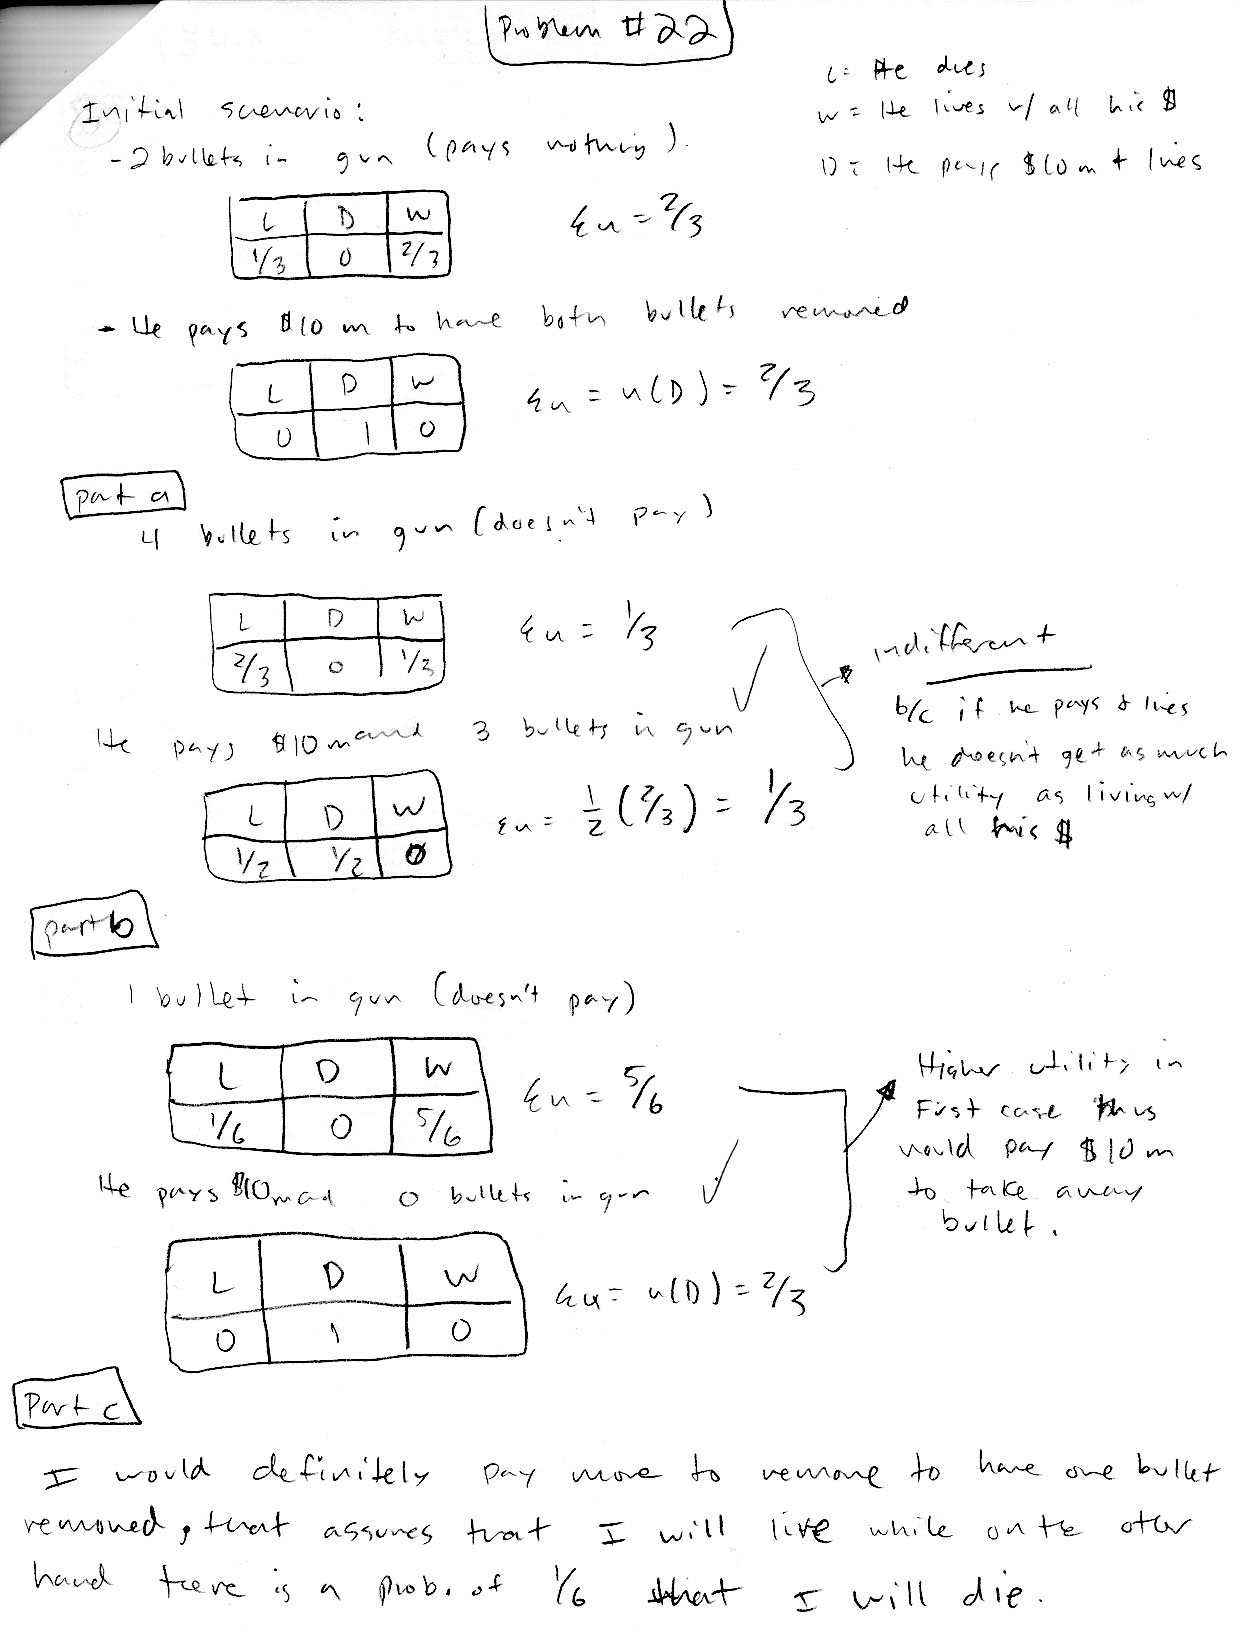 Problem #22
L= He dies
W = He lives w/ all his $
D = He pays $10m + lives
Initial scenario:
- 2 bullets in gun (pays nothing).
L D W
1/3 0 2/3
Eu = 2/3
- He pays $10 m to have both bullets removed
L D W
0 1 0
Eu = u(D) = 2/3
part a
4 bullets in gun (doesn't pay)
L D W
2/3 0 1/3
Eu = 1/3
He pays $10m and 3 bullets in gun
L D W
1/2 1/2 0
Eu = 1/2 (2/3) = 1/3
indifferent
b/c if he pays & lives
he doesn't get as much
utility as living w/
all his $
part b
1 bullet in gun (doesn't pay)
L D W
1/6 0 5/6
Eu = 5/6
He pays $10m and 0 bullets in gun
L D W
0 1 0
Eu = u(D) = 2/3
Higher utility in
First case thus
would pay $10m
to take away
bullet.
Part c
I would definitely pay more to remove to have one bullet
removed, that assures that I will live while on the other
hand there is a prob. of 1/6 that I will die.